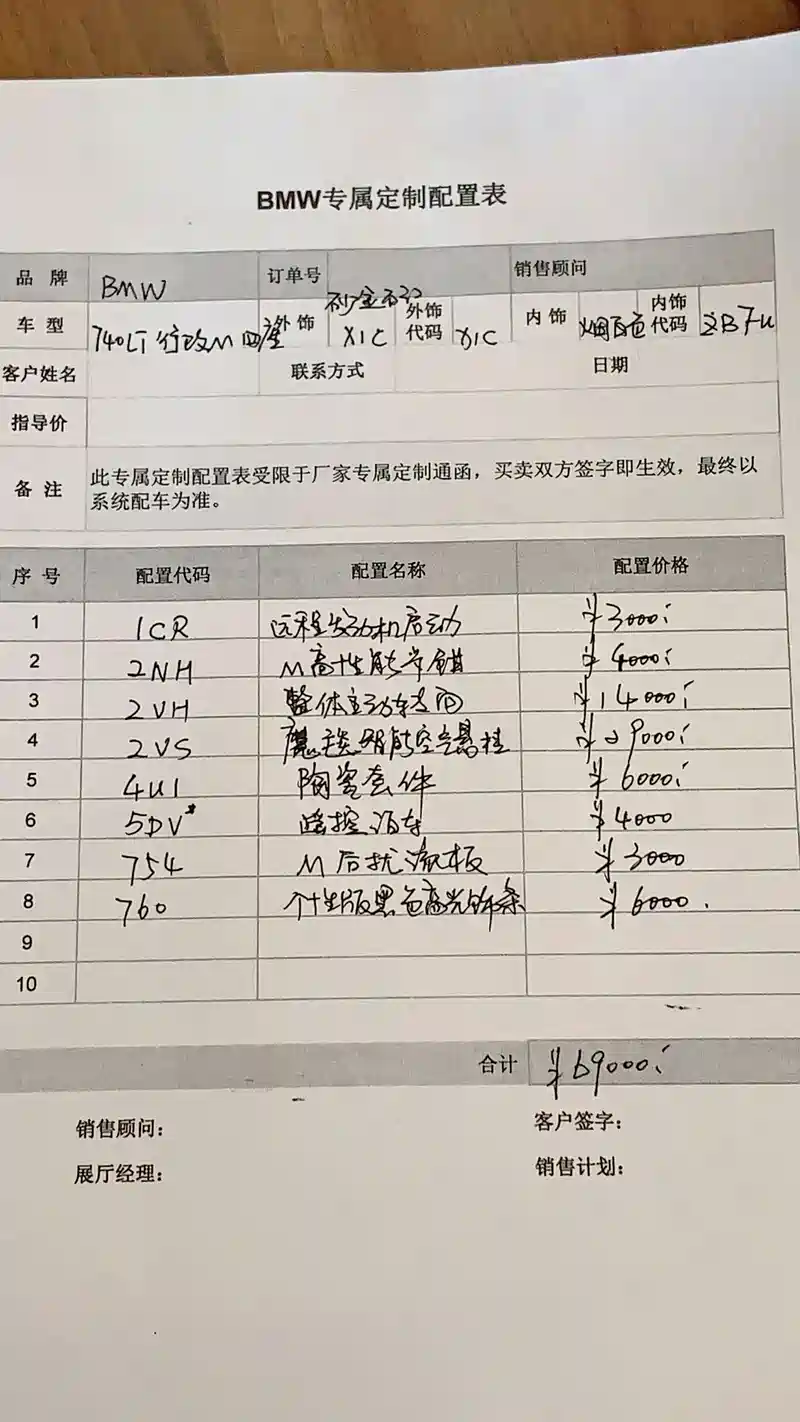 BMW专属定制配置表
品 牌 BMW 订单号 销售顾问
车 型 740LI 行政M 四座 外 饰 矿金石 X1C 外饰代码 X1C 内 饰 烟白色 内饰代码 ZBFU
客户姓名 联系方式 日期
指导价
备 注 此专属定制配置表受限于厂家专属定制通函，买卖双方签字即生效，最终以
系统配车为准。
序 号 配置代码 配置名称 配置价格
1 1CR 远程发动机启动 ¥3000
2 2NH M高性能 ¥4000
3 2VH 整体主动转向 ¥14000
4 2VS 魔毯智能空气悬挂 ¥29000
5 4U1 陶瓷套件 ¥6000
6 5DV* 遥控泊车 ¥4000
7 754 M后扰流板 ¥3000
8 760 个性版黑色高光饰条 ¥6000.
9
10
合计 ¥69000
销售顾问： 客户签字：
展厅经理： 销售计划：